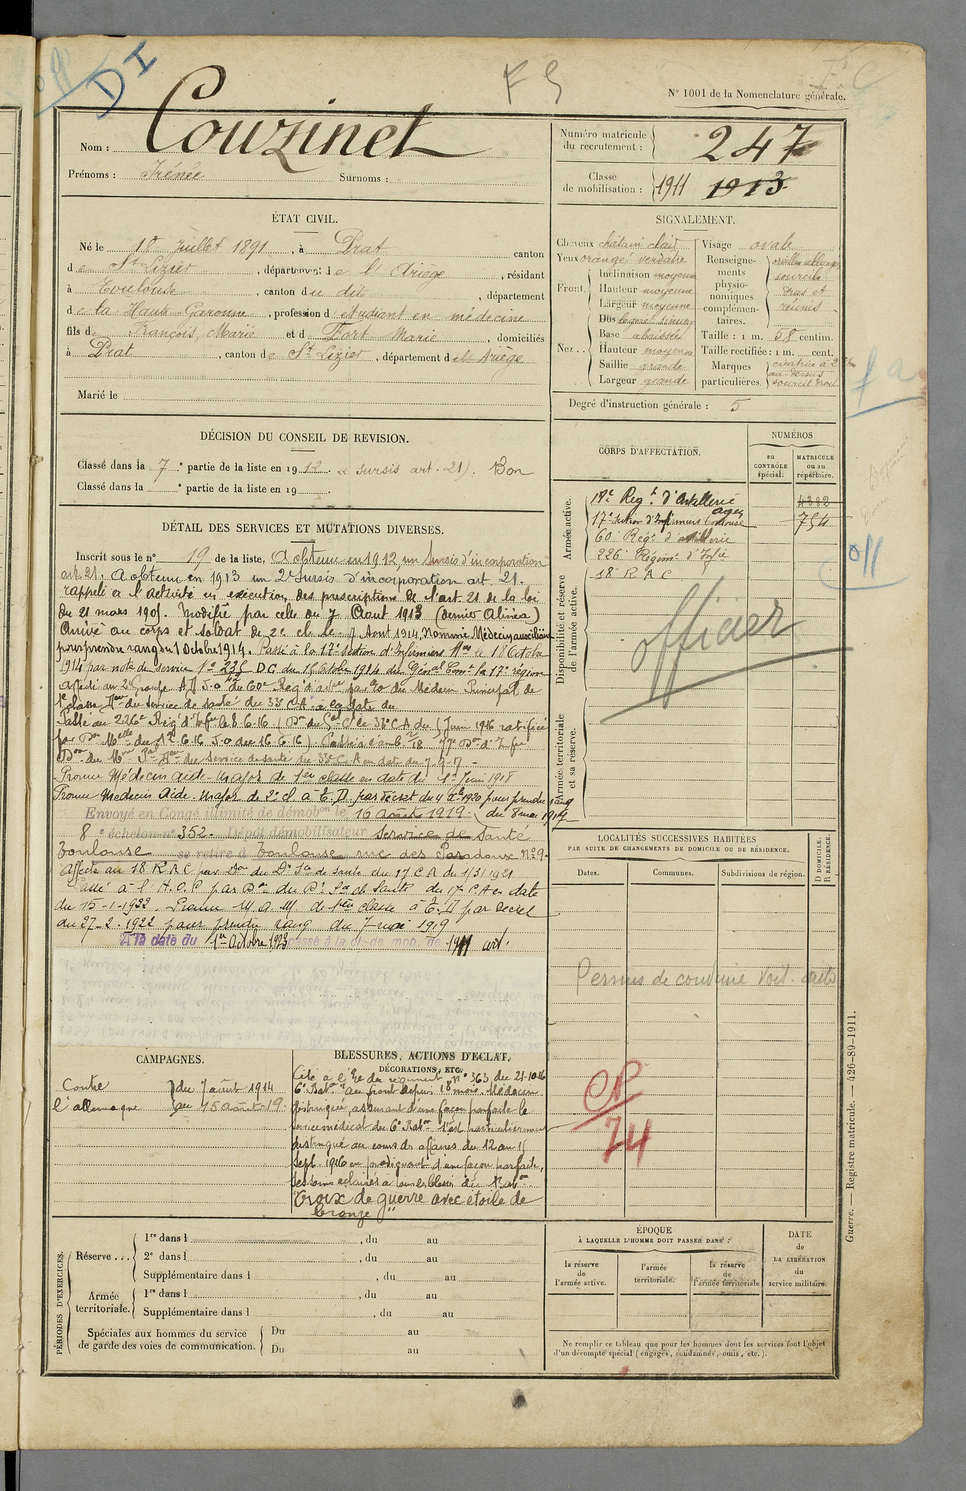 DI
FS
N° 1001 de la Nomenclature générale.
Nom : Couzinet
Prénoms : Irénée Surnoms :
Numéro matricule du recrutement : 247
Classe de mobilisation : 1911 1913
ÉTAT CIVIL.
Né le 10 Juillet 1891, à Prat canton
de St Lizier, département de l'Ariège, résidant
à Toulouse, canton du dit, département
de la Haute Garonne, profession d'étudiant en médecine
fils de François, Marie et de Fort Marie, domiciliés
à Prat, canton de St Lizier, département de l'Ariège
Marié le
SIGNALEMENT.
Cheveux châtain clair
Yeux orangé verdâtre
Front. Inclinaison moyenne
Hauteur moyenne
Largeur moyenne
Nez.. Dos
Base abaissée
Hauteur moyenne
Saillie grande
Largeur grande
Visage ovale
Renseignements physionomiques complémentaires.
sourcils
drus et
réunis
Taille : 1 m. 58 centim.
Taille rectifiée : 1 m. cent.
Marques particulières. cicatrice à 2
au-dessus
sourcil droit
Degré d'instruction générale : 5
DÉCISION DU CONSEIL DE REVISION.
Classé dans la 7e partie de la liste en 1912. (sursis art. 21). Bon
Classé dans la e partie de la liste en 19
DÉTAIL DES SERVICES ET MUTATIONS DIVERSES.
Inscrit sous le n° 19 de la liste, A obtenu en 1912 un sursis d'incorporation
art. 21. A obtenu en 1913 un 2e sursis d'incorporation art. 21.
rappelé à l'activité en exécution des prescriptions de l'art. 21 de la loi
du 21 mars 1905. Modifié par celle du 7 Août 1913 (dernier alinéa)
Arrivé au corps et soldat de 2e cl. le 7 Août 1914, Nommé Médecin auxiliaire
pour prendre rang du 1 Octobre 1914. Passé à la 17e Section d'Infirmiers le 18 Octobre
1914 par note de service N° 235 D.C. du 16 Octobre 1914 du Général Comt la 17e région
Affecté au 2e Groupe du 60e Rég. d'art par du Médecin Principal de
1e classe du service de santé du 33e C.A.
Passé au 226e Rég. d'Inf. le 8.6.16 33e C.A du 5 Juin 1916 ratifiée
du Service de santé du 33e C.A en date du 7-9-17 -
- Promu Médecin aide-major de 1ere classe en date du 1er Juin 1918
Promu Médecin Aide-Major de 2e cl à T.D. par décret du 4 1920 pour prendre rang
du 8 mai 1917
Envoyé en Congé illimité de démobon le 16 août 1919.
8e échelon n° 352. Dépôt démobilisateur Service de Santé
Toulouse se retire à Toulouse rue des Paradoux N° 9.
Affecté au 18 R.A.C par Don du 17 C.A du 1/3/1921
Passé à l' par du de Santé du 17e C.A en date
du 15-1-1922. Promu M.A.M. de 1ère classe à T.D par décret
du 27-2-1922 pour prendre rang du 7 mai 1919
A la date du 1er Octobre 1923 passé à la cl. de mob. de 1911 art.
CORPS D'AFFECTATION.
NUMÉROS
AU CONTRÔLE spécial.
MATRICULE ou au répertoire.
Armée active.
18e Regt d'Artillerie Agen 4382
17e Section d'Infirmiers Toulouse 754
60e Regt d'artillerie
226e Régimt d'Infie
18e R A C
Disponibilité et réserve de l'armée active.
officier
off
Armée territoriale et sa réserve.
LOCALITÉS SUCCESSIVES HABITÉES
PAR SUITE DE CHANGEMENTS DE DOMICILE OU DE RÉSIDENCE.
Dates. Communes. Subdivisions de région. D DOMICILE. R RÉSIDENCE.
Permis de conduire Voit. auto
CP
74
CAMPAGNES.
Contre l'allemagne
du 7 août 1914
au 15 août 19.
BLESSURES, ACTIONS D'ÉCLAT, DÉCORATIONS, ETC.
Cité à l'O. du régiment n° 363 du 21-10-16
6e Baton "au front depuis 18 mois. Médecin
distingué, assurant d'une façon parfaite le
service médical du 6e Baton. S'est particulièrement
distingué au cours des affaires du 12 au 15
Sept. 1916 en prodiguant d'une façon parfaite,
ses soins éclairés à tous les blessés du Baton
Croix de guerre avec étoile de
bronze"
PÉRIODES D'EXERCICES.
Réserve... 1re dans l , du au
2e dans l , du au
Supplémentaire dans l , du au
Armée territoriale. 1re dans l , du au
Supplémentaire dans l , du au
Spéciales aux hommes du service de garde des voies de communication. Du au
Du au
ÉPOQUE
À LAQUELLE L'HOMME DOIT PASSER DANS :
la réserve de l'armée active.
l'armée territoriale.
la réserve de l'armée territoriale
DATE de LA LIBÉRATION du service militaire.
Ne remplir ce tableau que pour les hommes dont les services font l'objet
d'un décompte spécial (engagés, condamnés, omis, etc.).
Guerre. — Registre matricule. — 426-89-1911.